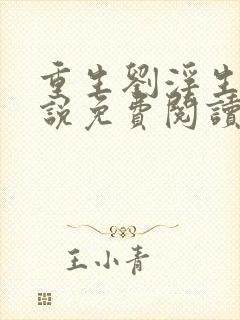 重生劉淫生
說免費閱讀
王小青